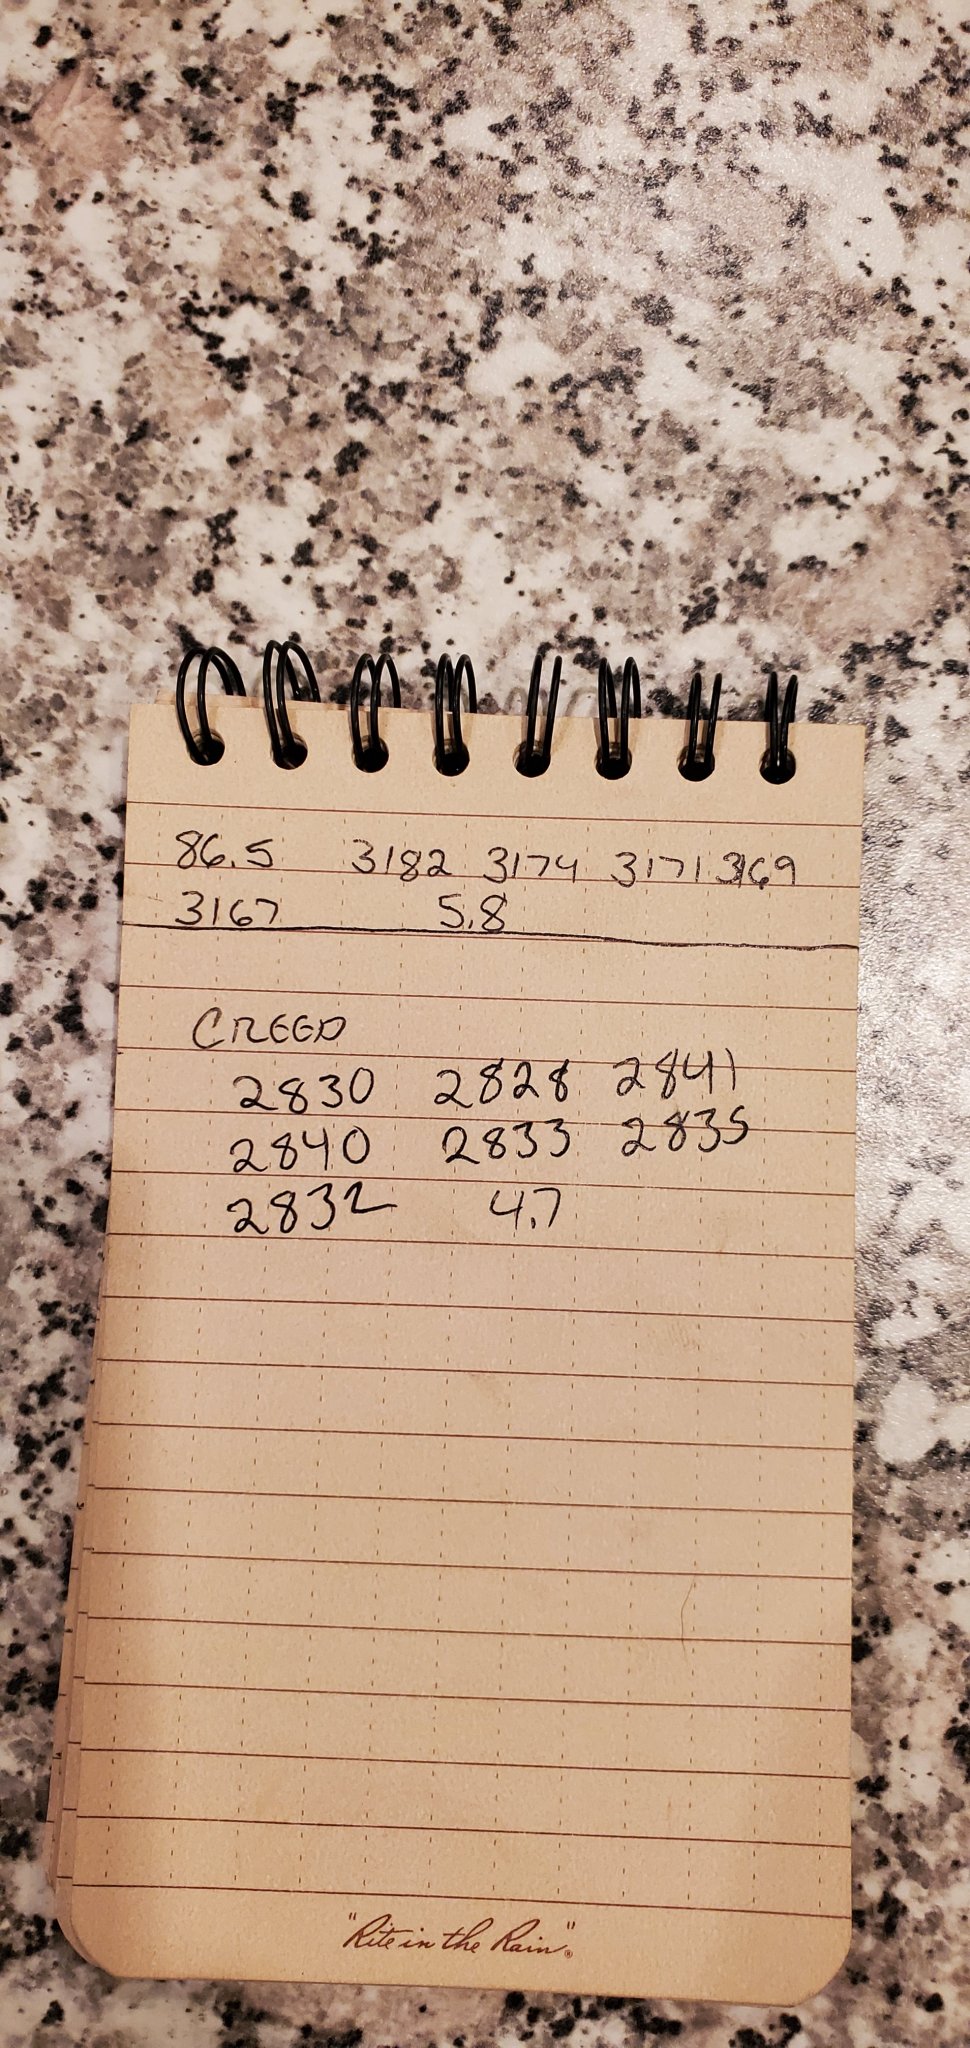 86.5 3182 3174 3171 3169
3167 5.8
CREED
2830 2828 2841
2840 2833 2835
2832 4.7
"Rite in the Rain"®